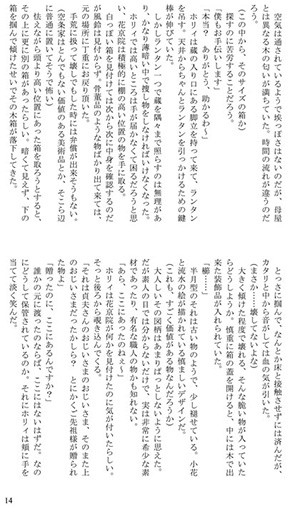 空気は通されているようで埃っぽさはないのだが、母屋
は異なる木の匂いが満ちていた。時間の流れが違うのか
(この中から、そのサイズの箱か)
探すのに苦労することだろう。
「僕もお手伝いします」
「本当? ありがとう、助かるわ~」
ホリィは蔵の入り口にある脚立を持って来て、ランタン
を吊す。天井からちゃんとランタンを引っかけるための鍵
棒が伸びて
しかしランタン一つで蔵を隅々まで照らすのは無理があ
り、かなり薄暗い中で捜し物をしなければいけなくなった。
ホリィでは高いところは手が届かなくて困るだろうと思
い、花京院は積極的に棚の高い位置の物を手に取る。
白っぽい箱を見付けては次から次に中身を確認するのだ
が、骨董品のような物ばかり出て来ては、
元の場所に丁重にお戻り頂いた。
手荒に扱って壊しでもした時には弁償が出来そうもない。
(空条家はとんでもない価値のある美術品とか、そこら辺
に普通に置いてそうで怖い)
怯えながら頭より高い位置にあった箱を取ろうとすると、
その上に更に別の箱があったらしい。暗くて見えず、下の
箱を掴んで傾けたせいでその木箱が落下してきた。
とっさに掴んで、なんとか床と接触させずには済んだが、
カタンと中から音がしては血の気が引いた。
(まさか……壊してないよな)
大きく傾けた程度で壊れる、そんな脆い物が入っていた
らどうしようか、慎重に箱の蓋を開けると、中には木で出
来た装飾品が入れられていた。
「櫛……」
半月型のそれは古い物のようで、少し褪せている。小花
と流水の絵が描かれている優美しいデザインだ。
(これも、すごく価値がある物なんだろうか)
大人しいその図柄はあまりぱっとしないように思えた。
だが素人の目では分からないだけで、実は非常に希少な素
材であったり、有名な職人の物かも知れない。
「あら、ここにあったのねぇ~」
ホリィは花京院が何かを見付けたのに気が付いたらしく、
そっと後ろから覗き込んでくる。
「それは貞夫さんのおじいさまのおじいさま、そのまた上
のおじいさまだったかしら? とにかくご先祖様が贈られ
た物よ」
「贈ったのに、ここにあるんですか?」
誰かの元に渡ったのならば、ここにはないはずだ。なの
にどうして保管されているのか、それにホリィは頬に手を
当てて淡く笑んだ。
14